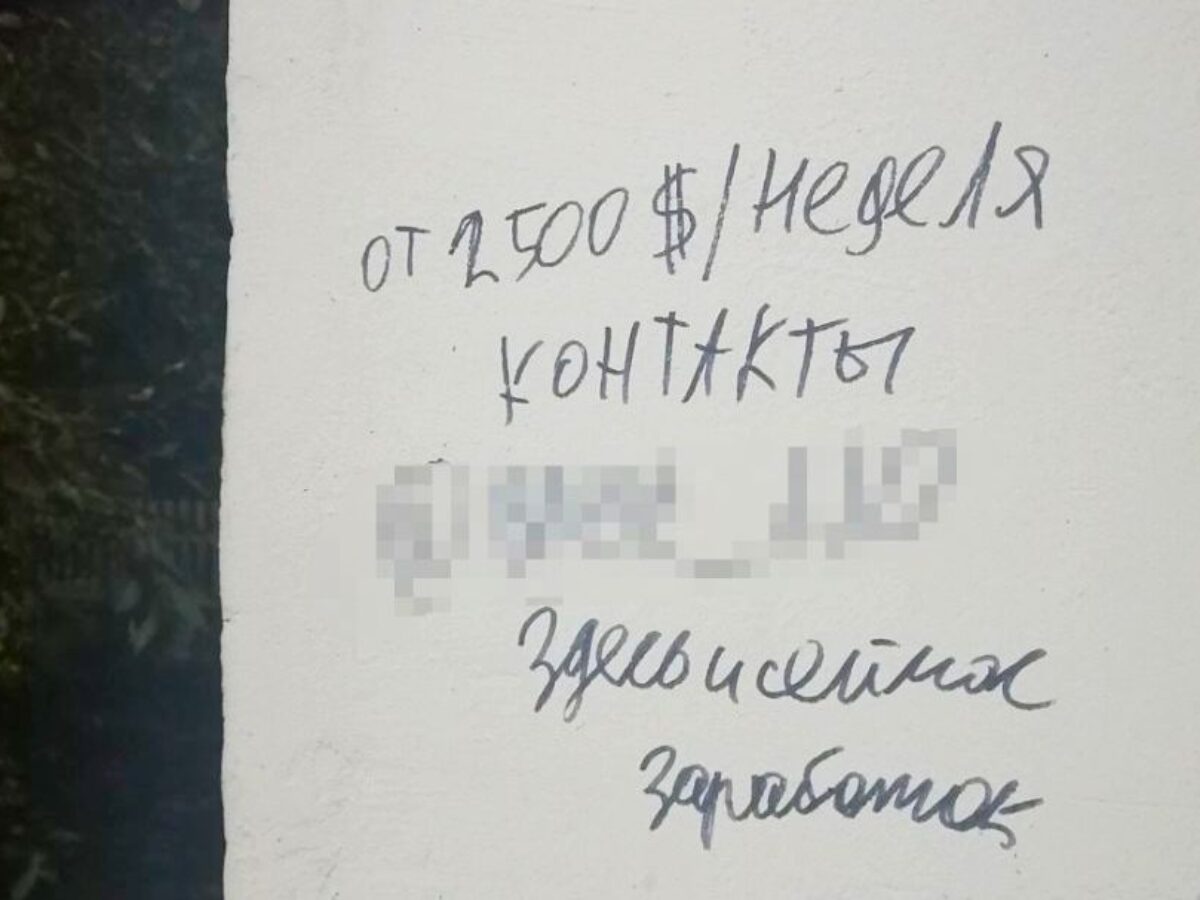 от 2500$/неделя
контакты
Здесь и сейчас
Заработок